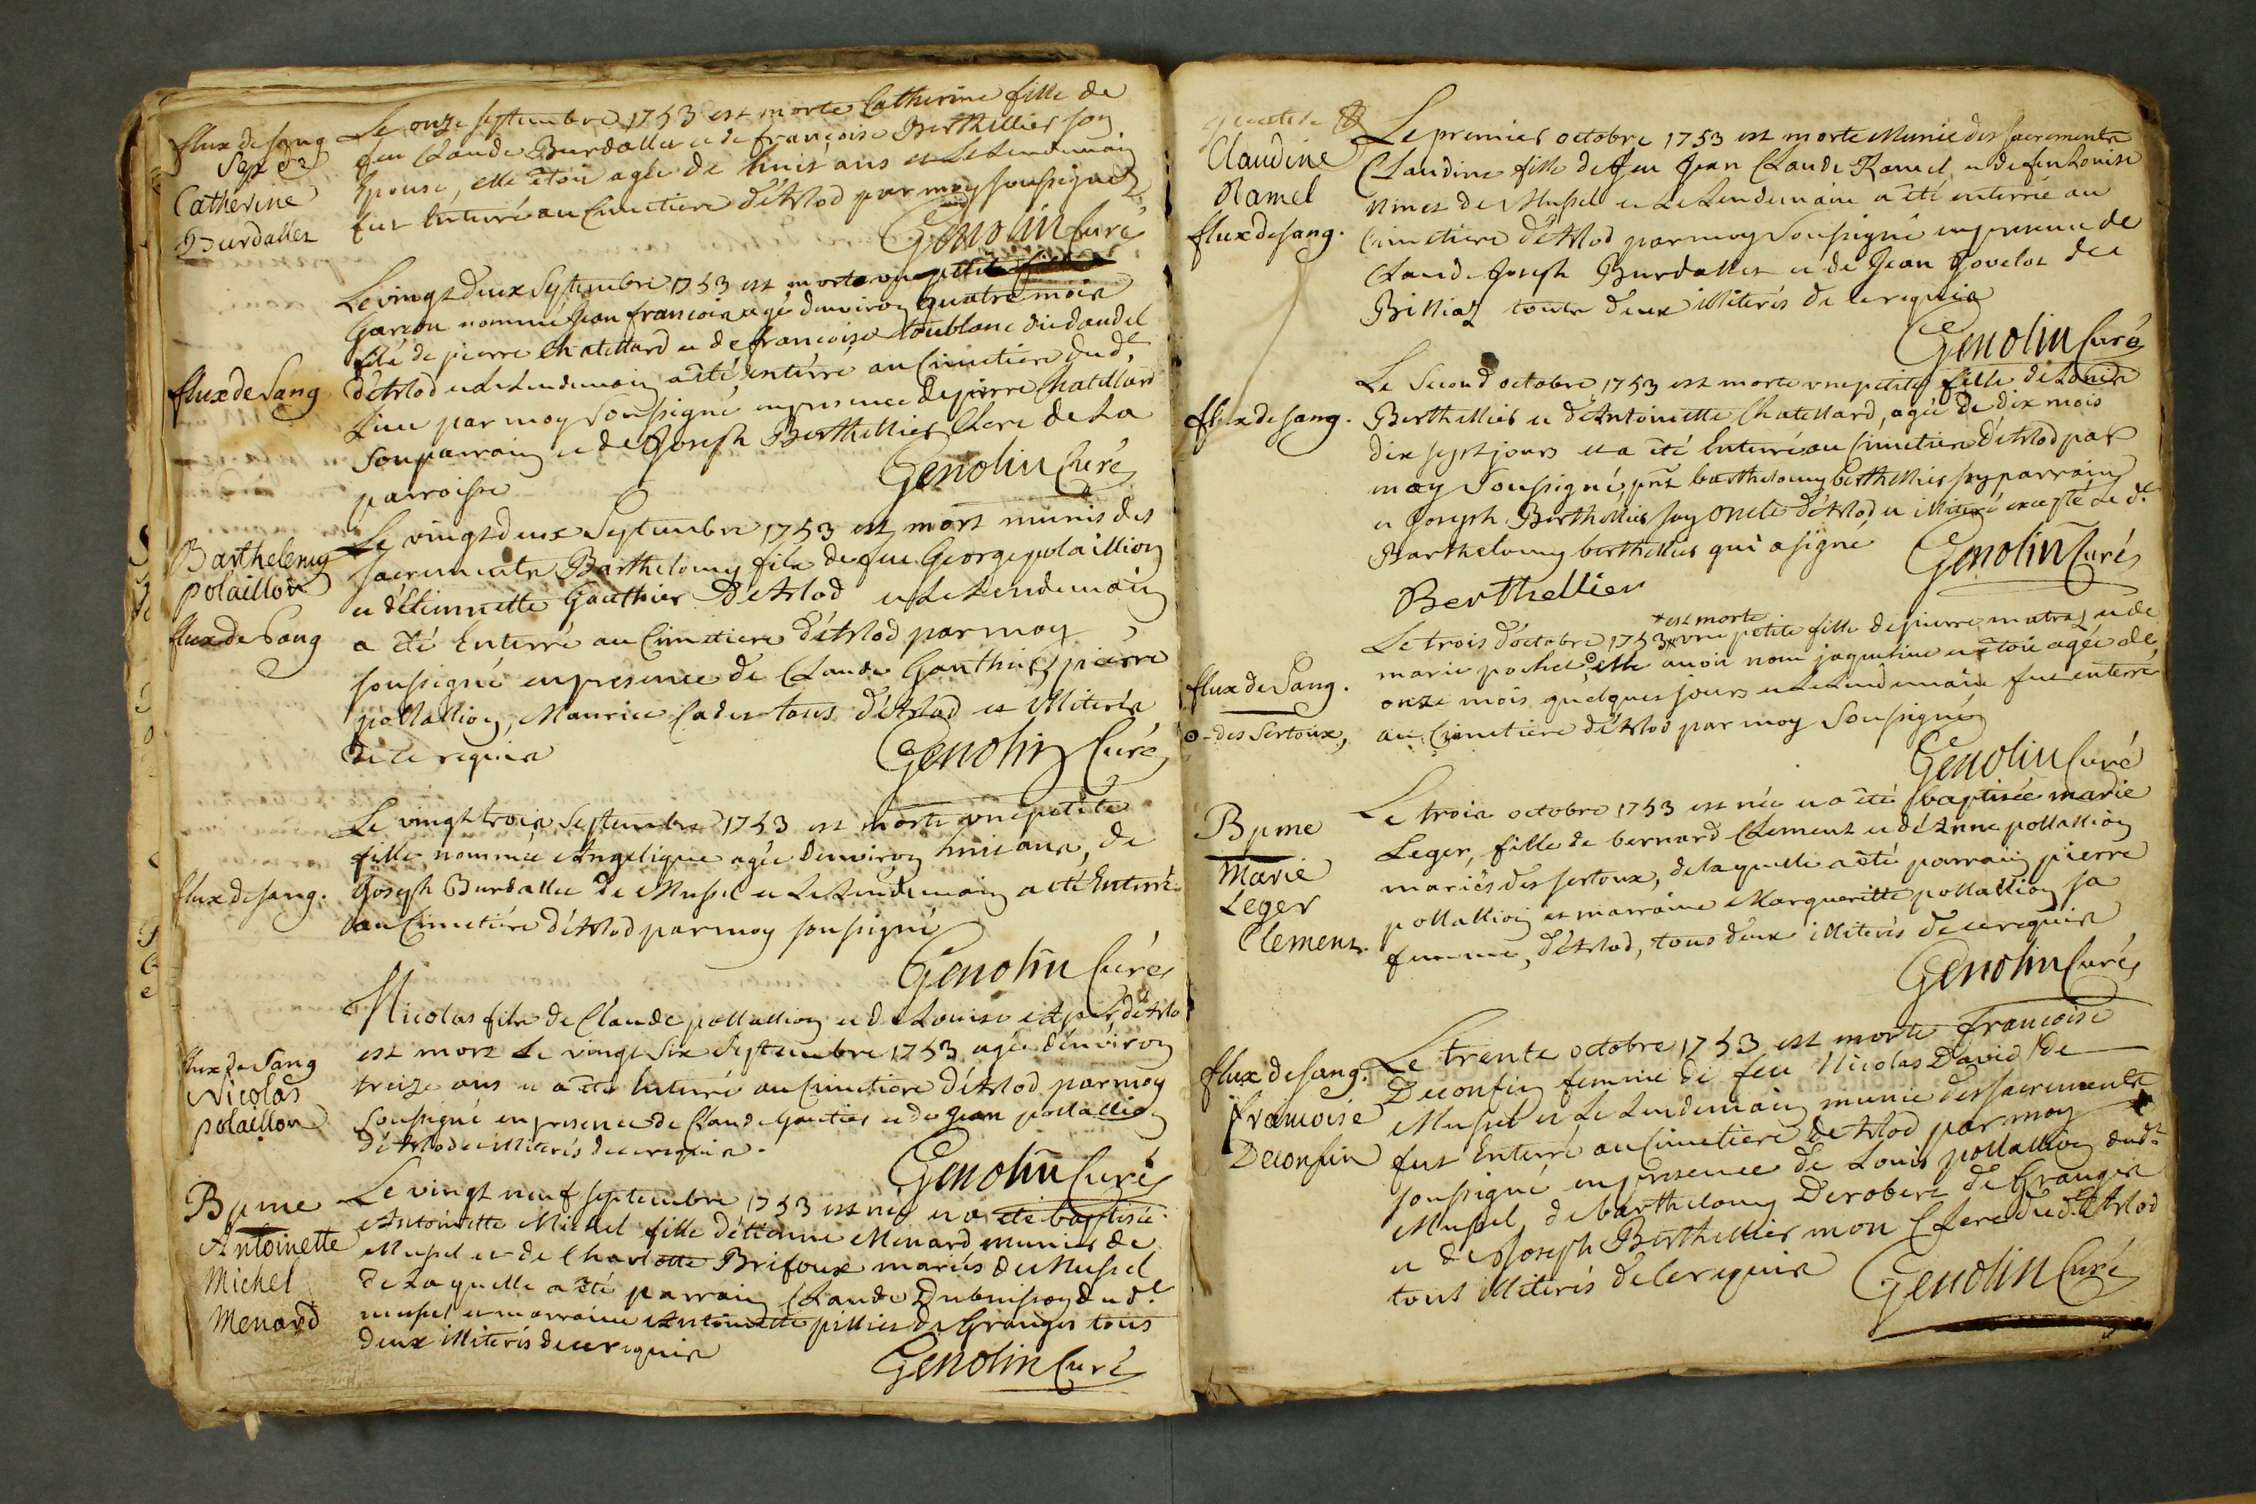 flux de sang
Sep
Catherine
Burdallet
Le onze septembre 1753 est morte Catherine fille de
feu Claude Burdallet et de françoise Berthellier son
Epouse, elle êtoit agée de huit ans et Le Lendemain
fut Enterré au Cimetiere d'Arlod par moy soussigné
Genolin Curé
flux de Sang
Le vingt deux Septembre 1753 est morte un petit
Garçon nommé Jean francois agé d'environ quatre mois
fils de pierre Chatellard et de francoise
d'Arlod et Le Lendemain a été Enterré au Cimetiere dud.t
Lieu par moy Soussigné en presence de pierre Chatellard
Son parrain et de Joseph Berthellier Clerc de La
parroisse
Genolin Curé
Barthelemy
polaillon
flux de Sang
Le vingt deux Septembre 1753 est mort munis des
sacrements Barthelemy fils de feu George polaillion
et d'Etiennette Gauthier D'Arlod et Le Lendemain
a été Enterré au Cimetiere d'Arlod par moy
soussigné en presence de Claude Gauthier, pierre
pollallion, Maurice Cadet tous d'Arlod et illiterés
de ce requis
Genolin Curé
flux de sang.
Le vingt trois Septembre 1753 est morte une petite
fille nommée Angelique agée d'environ huit ans, de
Joseph Burdallet de Mussel et Le Lendemain a été Enterré
au Cimetiére d'Arlod par moy soussigné
Genolin Curé
flux de Sang
Nicolas
polaillon
Nicolas fils de Claude pollallion et de Louise d'Arlo
est mort Le vingt Six Septembre 1753 agé d'environ
treize ans et a été Enterré au Cimetiere d'Arlod par moy
Soussigné en presence de Claude Gautier et de Jean pollallion
d'Arlod et illiterés de ce requis.
Genolin Curé
Bpme
Antoinette
Michel
Menard
Le vingt neuf septembre 1753 est née et a été baptisée
Antoinette Michel fille d'étienne Menard munier de
Mussel et de Charlotte Brifoux mariés de Mussel
de Laquelle a été parrain Claude Dubuisson dud.t
mussel et marraine Antoinette pillier de Granges tous
deux illiterés de ce requis
Genolin Curé
Claudine
Ramel
flux de sang.
Le premier octobre 1753 est morte Munie des sacrements
Claudine fille de feu Jean Claude Ramel et de feu Louise
Ninet de Mussel et Le Lendemain a été enterrée au
Cimetiere d'Arlod par moy Soussigné en presence de
Claude Joseph Burdallet et de Jean Jovelot de
Billiaz touts deux illiterés de ce requis
Genolin Curé
flux de sang.
Le Second octobre 1753 est morte une petite fille de Louis
Berthellier et d'Antoinette Chatellard, agée de dix mois
dix sept jours et a été Enterré au Cimetiere d'Arlod par
moy Soussigné, pnt barthelemy berthellier son parrain
et Joseph Berthellier son oncle d'Arlod et illiteré excepté Le d.t
Barthelemy berthellier qui a signé
Genolin Curé
Berthellier
flux de Sang.
- des Sertoux,
* est morte
Le trois d'octobre 1753 * une petite fille de pierre matraz et de
marie pochet, elle avoit nom jaqueline et étoit agée de
onze mois quelques jours et Le Lendemain fut enterré
au Cimetiere d'Arlod par moy Soussigné
Genolin Curé
Bpme
Marie
Leger
Clement.
Le trois octobre 1753 est née et a été baptisée marie
Leger, fille de bernard Clement et d'Anne pollallion
mariés des sertoux, de laquelle a été parrain pierre
pollallion et marraine Marguerite pollallion sa
femme, d'Arlod, tous deux illiterés de ce requis
Genolin Curé
flux de sang.
francoise
Deconfin
Le trente octobre 1753 est morte francoise
Deconfin femme de feu Nicolas David de
Mussel et Le Lendemain munie des sacrements
fut Enterré au Cimetiere de Arlod par moy
soussigné en presence de Louis pollallion dud.t
Mussel, de barthelemy Derobert de Granges
et de Joseph Berthellier mon Clerc dud.t Arlod
tous illiterés de ce requis
Genolin Curé